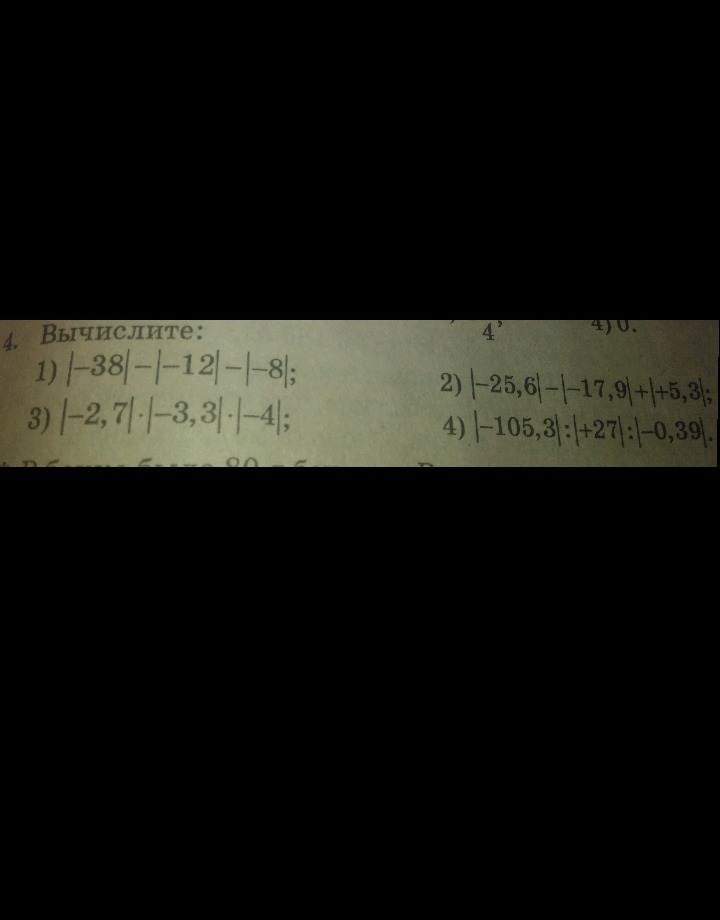 4'
4) 0.
4. Вычислите:
1) |–38|–|–12|–|–8|;
2) |–25,6|–|–17,9|+|+5,3|;
3) |–2,7|·|–3,3|·|–4|;
4) |–105,3|:|+27|:|–0,39|.
было 80